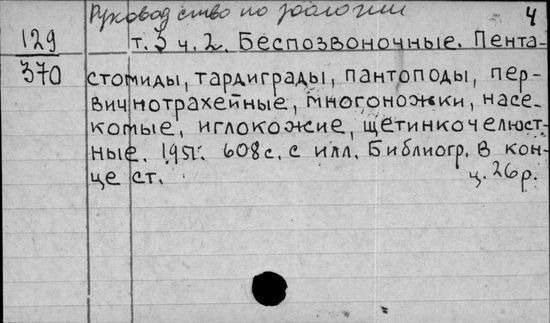 Руководство по зоологии 4
129 т. 3 ч. 2. Беспозвоночные. Пента-
370 стомиды, тардиграды, пантоподы, пер-
вичнотрахейные, многоножки, насе-
комые, иглокожие, щетинкочелюст-
ные. 1951. 608с. с илл. Библиогр. в кон-
це ст. ц. 26р.